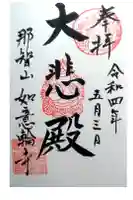 奉拝
令和四年
五月三日
大悲殿
那智山
如意輪寺